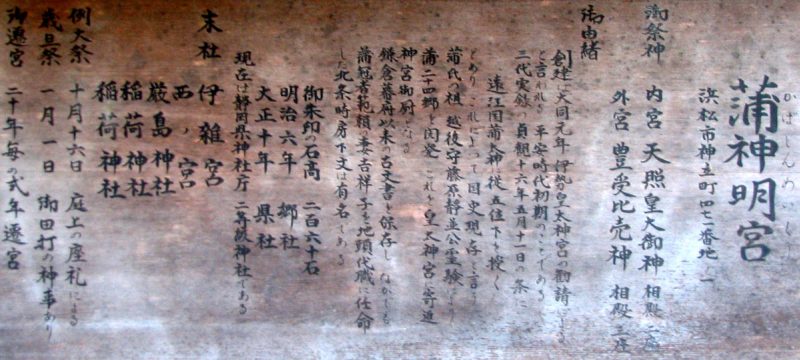 かばしんめいぐう
蒲神明宮
浜松市神立町四七一番地ノ一
御祭神
内宮 天照皇大御神 相殿 二座
外宮 豊受比売神 相殿 三座
御由緒
創建は大同元年 伊勢皇太神宮の勧請による
と言われる 平安時代初期のことである
三代実録の貞観十六年五月十一日の条に
遠江国蒲大神に従五位下を授く
とあり これによって国史現存と言う
蒲氏の祖 越後守藤原静並公霊験により
蒲二十四郷を開発 これを皇大神宮に寄進
神宮御厨となる
鎌倉幕府以来の古文書を保存し なかにも
蒲冠者範頼 吉祥子を地頭代職に任命
した北条時房下文は有名である
御朱印の石高 二百六十石
明治六年 郷社
大正十年 県社
現在は静岡県神社庁 二等級神社である
末社 伊雑宮
西ノ宮
厳島神社
稲荷神社
稲荷神社
例大祭 十月十六日 庭上の座礼による
歳旦祭 一月一日 御田打の神事あり
御遷宮 二十年毎の式年遷宮